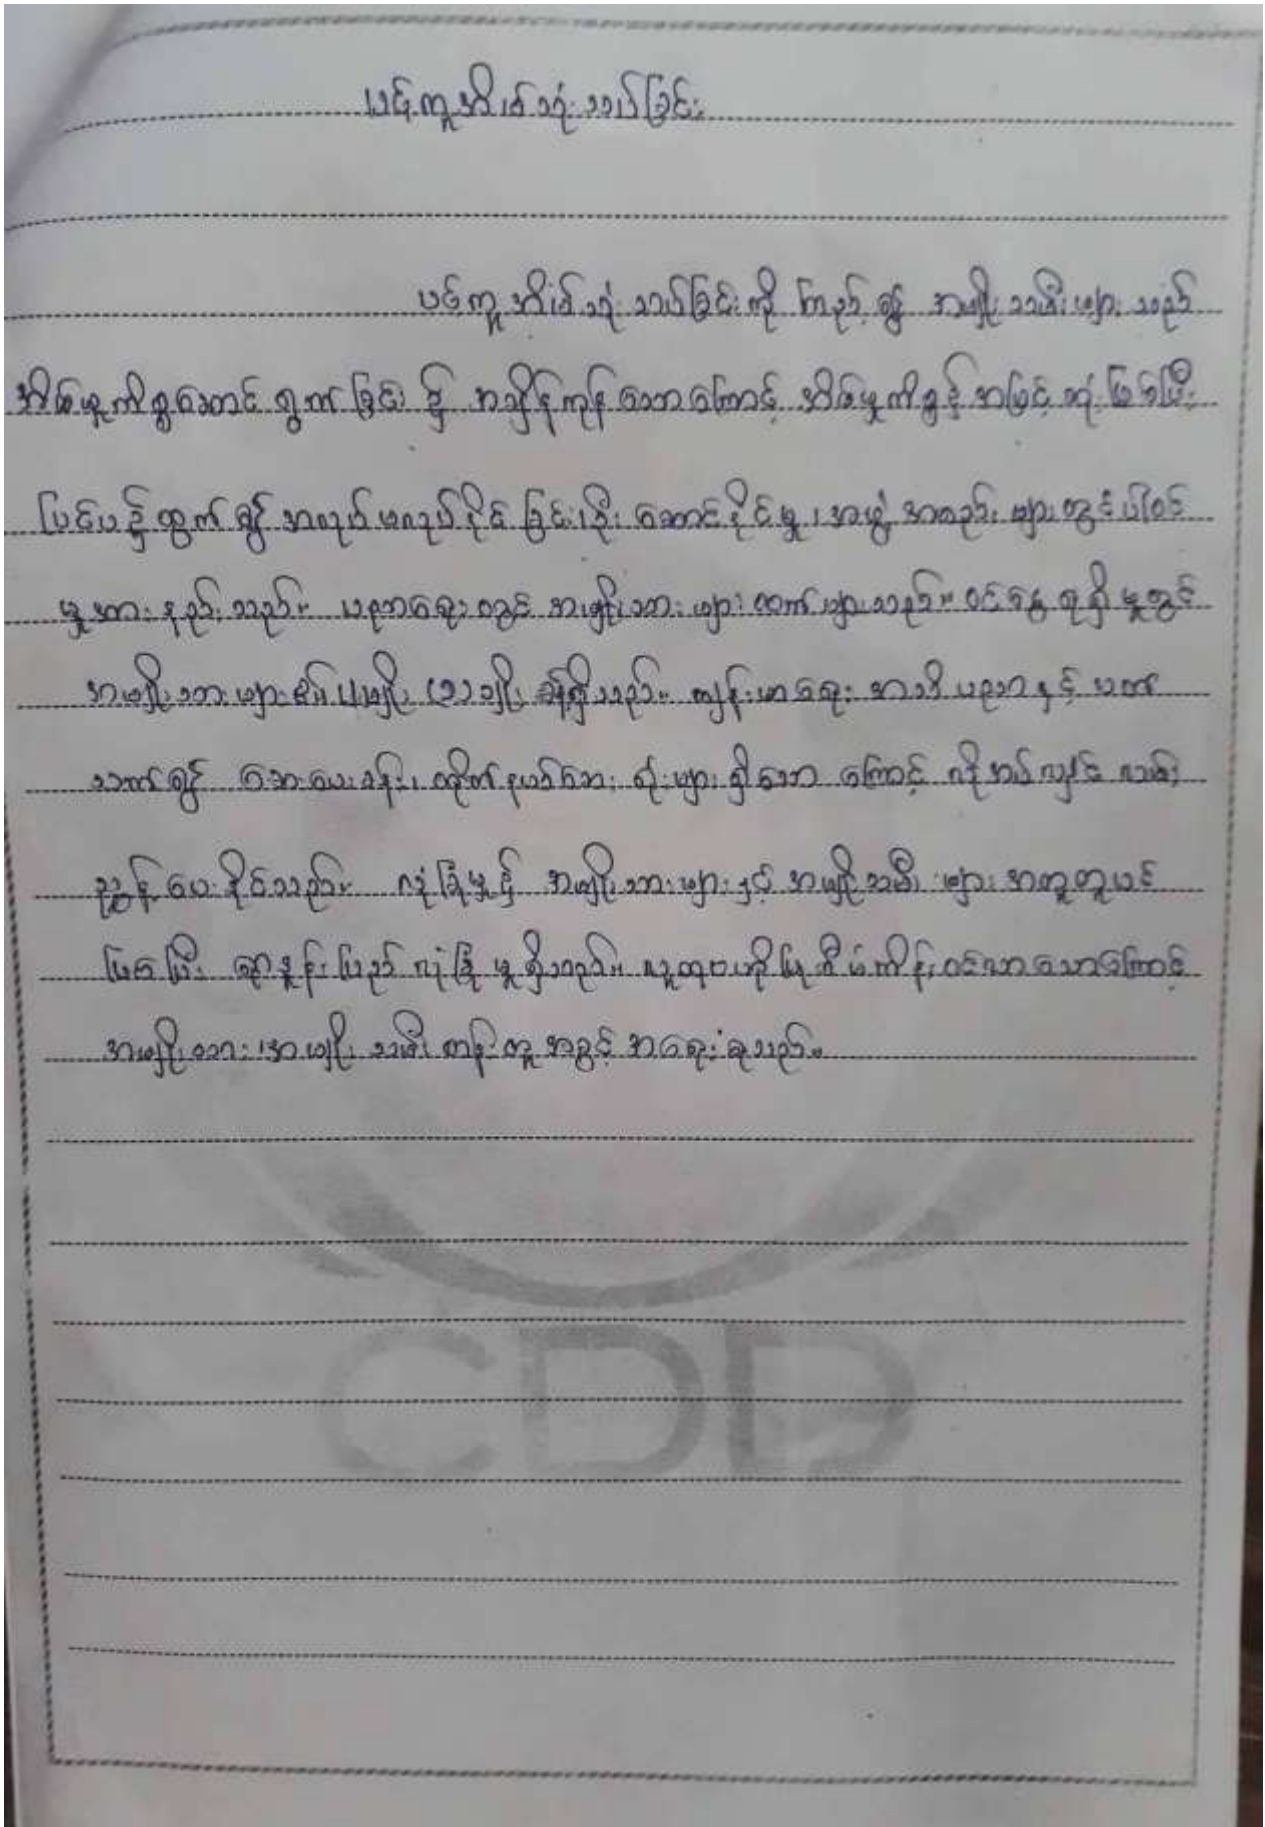 ပင့်ကူအိမ်သုံးသပ်ခြင်း
ပင့်ကူအိမ်သုံးသပ်ခြင်းကို ကြည့်၍ အမျိုးသမီးများသည်
အိမ်မှုကိစ္စဆောင်ရွက်ခြင်း၌ အချိန်ကုန်သောကြောင့် အိမ်မှုကိစ္စနှင့် အမြင့်ဆုံးဖြစ်ပြီး
ပြင်ပ၌ထွက်၍ အလုပ်မလုပ်နိုင်ခြင်း၊ ဦးဆောင်နိုင်မှု၊ အဖွဲ့အစည်းများတွင်ပါဝင်
မှုအားနည်းသည်။ ပညာရေးတွင် အမျိုးသားများထက်များသည်။ ဝင်ငွေရရှိမှုတွင်
အမျိုးသားများ ကျန်းမာရေး အသိပညာနှင့်ပတ်
သက်၍ ဆေးပေးခန်း၊ တိုက်နယ်ဆေးရုံများရှိသောကြောင့် လိုအပ်လျှင် လမ်း
ညွှန်ပေးနိုင်သည်။ လုံခြုံမှု၌ အမျိုးသားများနှင့် အမျိုးသမီးများ အတူတူပင်
ဖြစ်ပြီး ရာနှုန်းပြည့်လုံခြုံမှုရှိသည်။ လူထုဗဟိုပြုစီမံကိန်းဝင်လာသောကြောင့်
အမျိုးသား၊ အမျိုးသမီး တန်းတူအခွင့်အရေးရသည်။
CDD